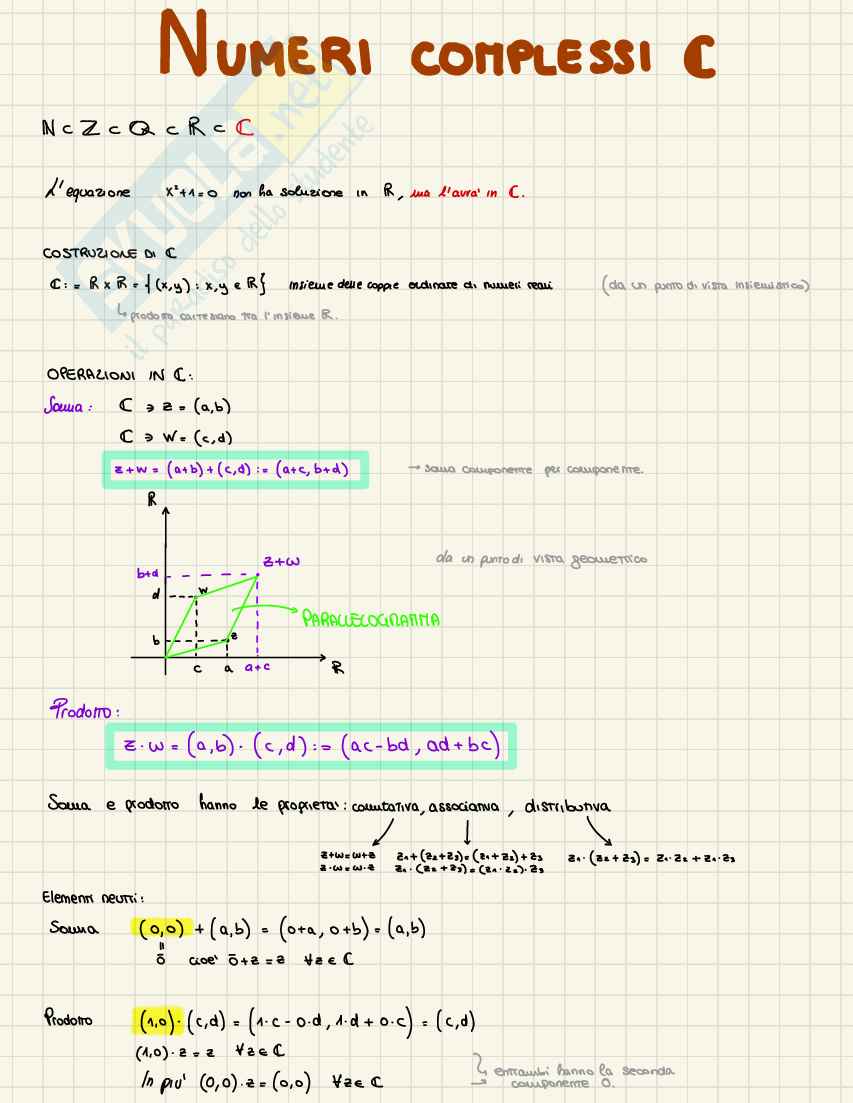 NUMERI COMPLESSI ℂ
ℕ ⊂ ℤ ⊂ ℚ ⊂ ℝ ⊂ ℂ
L'equazione x²+1=0 non ha soluzione in ℝ, ma l'avrà in ℂ.
COSTRUZIONE DI ℂ
ℂ := ℝ x ℝ = {(x,y) : x,y ∈ ℝ} insieme delle coppie ordinate di numeri reali (da un punto di vista insiemistico)
↳ prodotto cartesiano tra l'insieme ℝ.
OPERAZIONI IN ℂ:
Somma: ℂ ∋ z = (a,b)
ℂ ∋ w = (c,d)
z+w = (a+b)+(c,d) := (a+c, b+d) → somma componente per componente.
ℝ
da un punto di vista geometrico
z+w
b+d
d w
PARALLELOGRAMMA
b z
c a a+c ℝ
Prodotto:
z·w = (a,b)·(c,d) := (ac-bd, ad+bc)
Somma e prodotto hanno le proprietà: commutativa, associativa, distributiva
z+w=w+z z1+(z2+z3)=(z1+z2)+z3 z1·(z2+z3)= z1·z2+z1·z3
z·w=w·z z1·(z2+z3)=(z1·z2)·z3
Elementi neutri:
Somma (0,0) + (a,b) = (0+a, 0+b) = (a,b)
=
0̄ cioè 0̄+z=z ∀z∈ℂ
Prodotto (1,0)·(c,d) = (1·c-0·d, 1·d+0·c) = (c,d)
(1,0)·z=z ∀z∈ℂ
In più (0,0)·z=(0,0) ∀z∈ℂ
→ entrambi hanno la seconda
componente 0.
SKUOLA.net
il paradiso dello studente